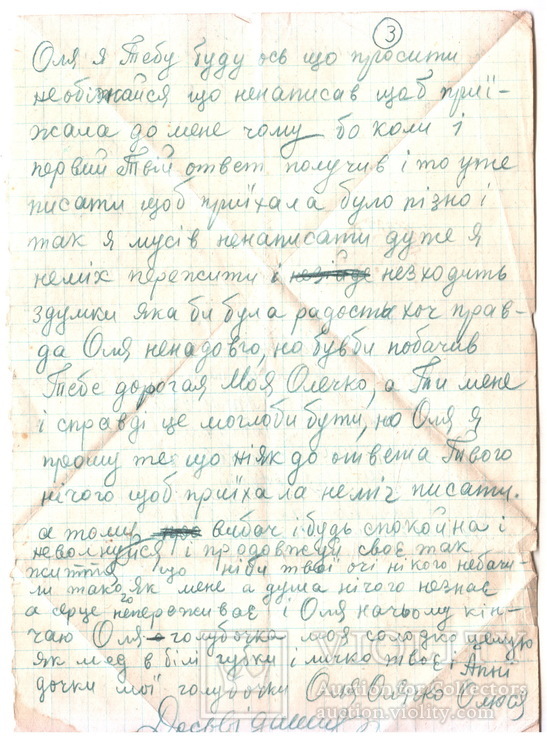 3
Оля я Тебу буду ось що просити
необіжайся що ненаписав щоб приї-
жала до мене чому бо коли і
первий Твій ответ получив і то уже
писати щоб приїхала було пізно і
так я мусів ненаписати дуже я
неміх пережити і незходить
здумки яка би була радость хоч прав-
да Оля ненадовго, но бувби побачив
Тебе дорогая Моя Олечко, а Ти мене
і справді це моглоби бути, но Оля я
прошу те що ніяк до ответа Твого
нічого щоб приїхала неміг писати.
а тому вибач і будь спокойна і
неволнуйся і продовжуй своє так
життя що ніби твої очі нікого небачи-
ли такого як мене а дума нічого незнає
а серце непереживає і Оля начьому кін-
чаю Оля голубочка моя солодко цілую
як мед в білі губки і личко твоє і
дочки мої голубочки Оля
Досьвідання
VIOLITY
Auction for Collectors
auction.violity.com